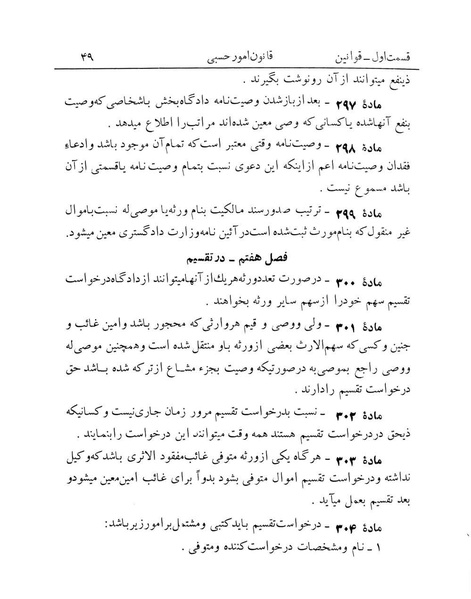 قسمت اول ـ قوانین قانون امور حسبی ۴۹
ذینفع میتوانند از آن رونوشت بگیرند .
مادهٔ ۲۹۷ ـ بعد از باز شدن وصیت‌نامه دادگاه بخش باشخاصی که وصیت
بنفع آنها شده یا کسانی که وصی معین شده‌اند مراتب را اطلاع میدهد .
مادهٔ ۲۹۸ ـ وصیت‌نامه وقتی معتبر است که تمام آن موجود باشد و ادعاء
فقدان وصیت‌نامه اعم از اینکه این دعوی نسبت بتمام وصیت نامه یا قسمتی از آن
باشد مسموع نیست .
مادهٔ ۲۹۹ ـ ترتیب صدور سند مالکیت بنام ورثه یا موصی‌له نسبت باموال
غیر منقول که بنام مورث ثبت شده است در آئین نامه وزارت دادگستری معین میشود.
فصل هفتم ـ در تقسیم
مادهٔ ۳۰۰ ـ در صورت تعدد ورثه هر یک از آنها میتوانند از دادگاه درخواست
تقسیم سهم خود را از سهم سایر ورثه بخواهند .
مادهٔ ۳۰۱ ـ ولی و وصی و قیم هر وارثی که محجور باشد و امین غائب و
جنین و کسی که سهم‌الارث بعضی از ورثه باو منتقل شده است و همچنین موصی‌له
و وصی راجع بموصی‌به در صورتیکه وصیت بجزء مشاع از ترکه شده باشد حق
درخواست تقسیم را دارند.
مادهٔ ۳۰۲ ـ نسبت بدرخواست تقسیم مرور زمان جاری نیست و کسانیکه
ذیحق در درخواست تقسیم هستند همه وقت میتوانند این درخواست را بنمایند .
مادهٔ ۳۰۳ ـ هر گاه یکی از ورثه متوفی غائب مفقود الاثری باشد که وکیل
نداشته و درخواست تقسیم اموال متوفی بشود بدواً برای غائب امین معین میشود و
بعد تقسیم بعمل میآید .
مادهٔ ۳۰۴ ـ درخواست تقسیم باید کتبی و مشتمل بر امور زیر باشد:
۱ ـ نام و مشخصات درخواست کننده و متوفی .